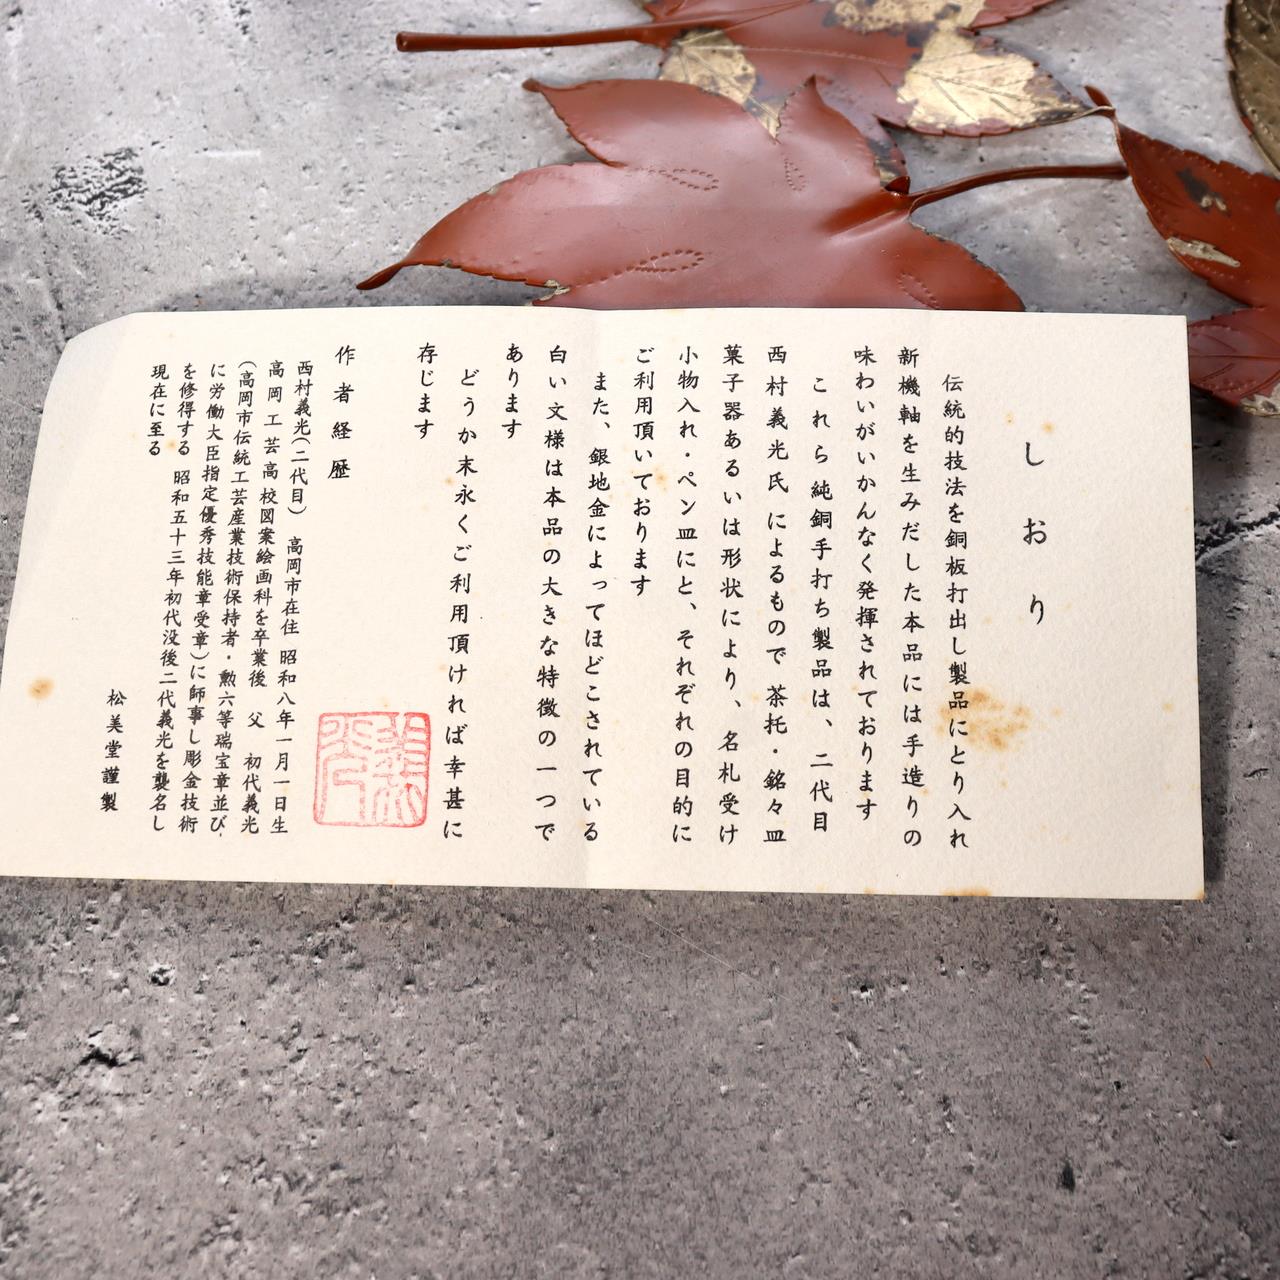 しおり
伝統的技法を銅板打出し製品にとり入れ
新機軸を生みだした本品には手造りの
味わいがいかんなく発揮されております
これら純銅手打ち製品は、二代目
西村義光氏によるもので茶托・銘々皿
菓子器あるいは形状により、名札受け
小物入れ・ペン皿にと、それぞれの目的に
ご利用頂いております
また、銀地金によってほどこされている
白い文様は本品の大きな特徴の一つで
あります
どうか末永くご利用頂ければ幸甚に
存じます
作者経歴
西村義光(二代目) 高岡市在住 昭和八年一月一日生
高岡工芸高校図案絵画科を卒業後 父 初代義光
(高岡市伝統工芸産業技術保持者・勲六等瑞宝章並び
に労働大臣指定優秀技能章受章)に師事し彫金技術
を修得する 昭和五十三年初代没後二代義光を襲名し
現在に至る
松美堂謹製